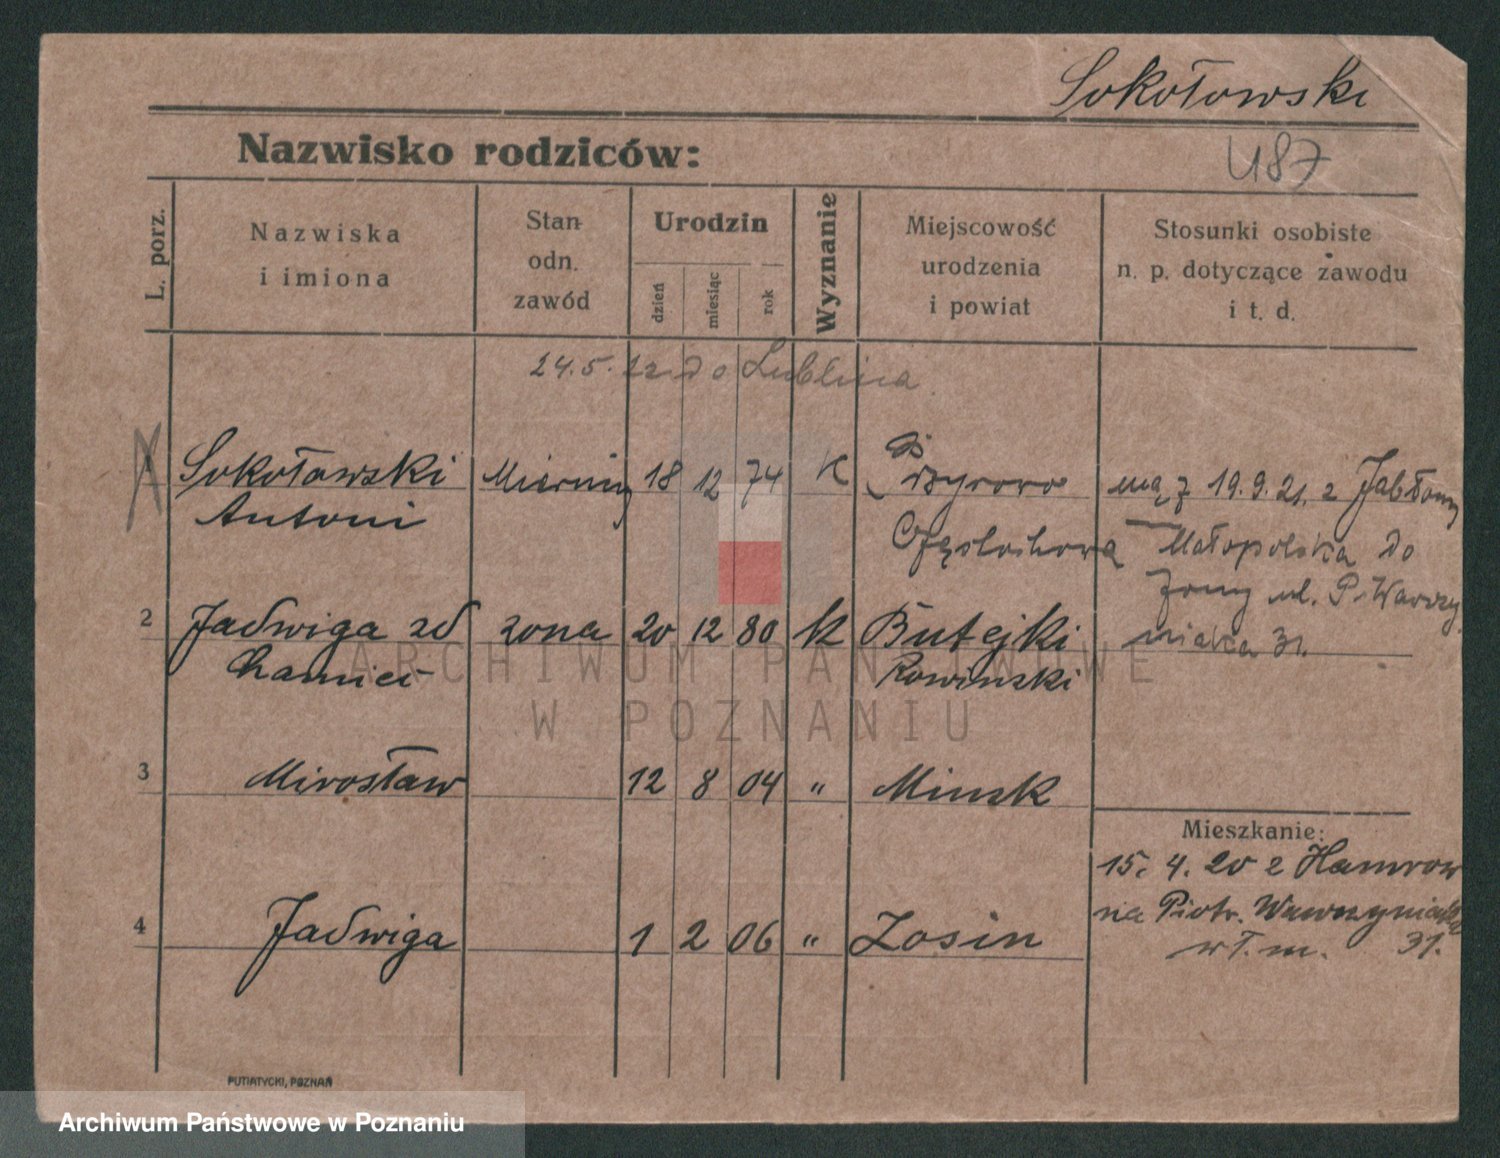 Sokołowski
Nazwisko rodziców:
L. porz.
Nazwiska
i imiona
Stan
odn.
zawód
Urodzin
dzień
miesiąc
rok
Wyznanie
Miejscowość
urodzenia
i powiat
Stosunki osobiste
n. p. dotyczące zawodu
i t. d.
24.5. do Lublina
Sokołowski 18 12 74 K
Antoni
Częstochowa
mąż 19.9.21. z
Małopolska do
żony ul. P. Wawrzy
niaka 31.
2 Jadwiga zd żona 20 12 80 K Butejki
3 Mirosław 12 8 04 " Minsk
4 Jadwiga 1 2 06 " Zosin
Mieszkanie:
15. 4. 20 z
na Piotr. Wawrzyniaka
31.
PUTIATYCKI, POZNAŃ
ARCHIWUM PAŃSTWOWE
W POZNANIU
Archiwum Państwowe w Poznaniu